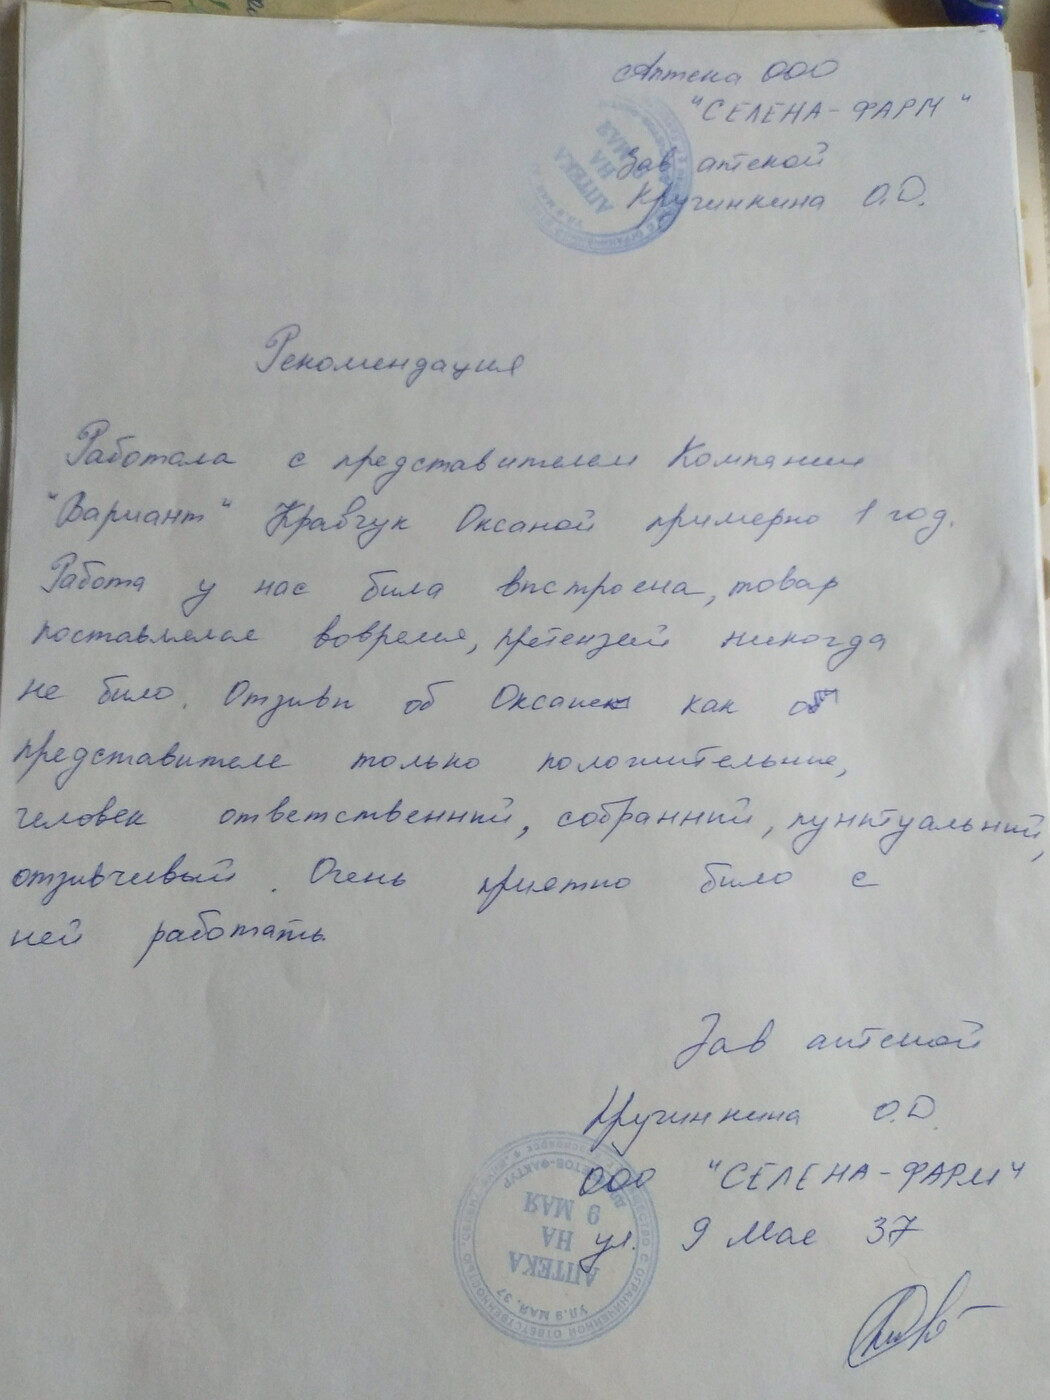 Аптека ООО
"СЕЛЕНА-ФАРМ"
Зав аптекой
Кручинкина О.D.
АПТЕКА
НА
9 МАЯ
Рекомендация
Работала с представителем Компании
"Вариант" Кравчук Оксаной примерно 1 год.
Работа у нас была выстроена, товар
поставлялся вовремя, претензий никогда
не было. Отзывы об Оксане как о
представителе только положительные,
человек ответственный, собранный, пунктуальный,
отзывчивый. Очень приятно было с
ней работать.
Зав аптекой
Кручинкина О.D.
ООО "СЕЛЕНА-ФАРМ"
ул. 9 Мая 37
АПТЕКА
НА
9 МАЯ
УЛ. 9 МАЯ, 37
С ОГРАНИЧЕННОЙ ОТВЕТСТВЕННОСТЬЮ